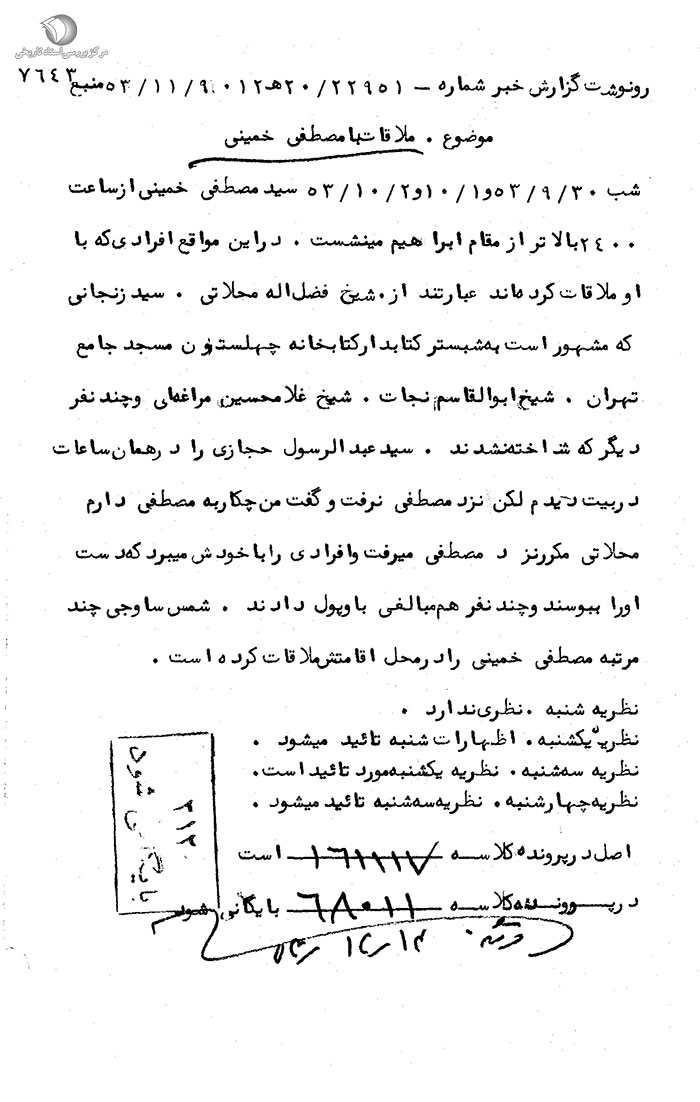 مرکز بررسی اسناد تاریخی
رونوشت گزارش خبر شماره – ۲۰/۲۲۹۵۱هـ۱۲ ۰ ۵۳/۱۱/۹منبع ۷۶۴۳
موضوع . ملاقات با مصطفی خمینی
شب ۵۳/۹/۳۰و۱۰/۱و۵۳/۱۰/۲ سید مصطفی خمینی از ساعت
۲۴۰۰ بالا تر از مقام ابراهیم مینشست . در این مواقع افرادی که با
او ملاقات کرده‌اند عبارتند از. شیخ فضل‌اله محلاتی . سید زنجانی
که مشهور است به شبستر کتابدار کتابخانه چهلستون مسجد جامع
تهران . شیخ ابوالقاسم نجات . شیخ غلامحسین مراغه‌ای وچند نفر
دیگر که شناخته نشدند . سید عبدالرسول حجازی را در همان ساعات
در بیت دیدم لکن نزد مصطفی نرفت و گفت من چکار به مصطفی دارم
محلاتی مکرر نزد مصطفی میرفت و افرادی را با خودش میبرد که دست
اورا ببوسند وچند نفر هم مبالغی باو پول دادند . شمس ساوجی چند
مرتبه مصطفی خمینی را در محل اقامتش ملاقات کرده است .
نظریه شنبه . نظری ندارد .
نظریه یکشنبه . اظهارات شنبه تائید میشود .
نظریه سه‌شنبه . نظریه یکشنبه مورد تائید است.
نظریه چهارشنبه . نظریه سه‌شنبه تائید میشود .
۳۱۲
بایگانی شود
اصل در پرونده کلاسه ۱۶۱۱۱۷ است
در پرونده کلاسه ۶۸۰۱۱ بایگانی شود